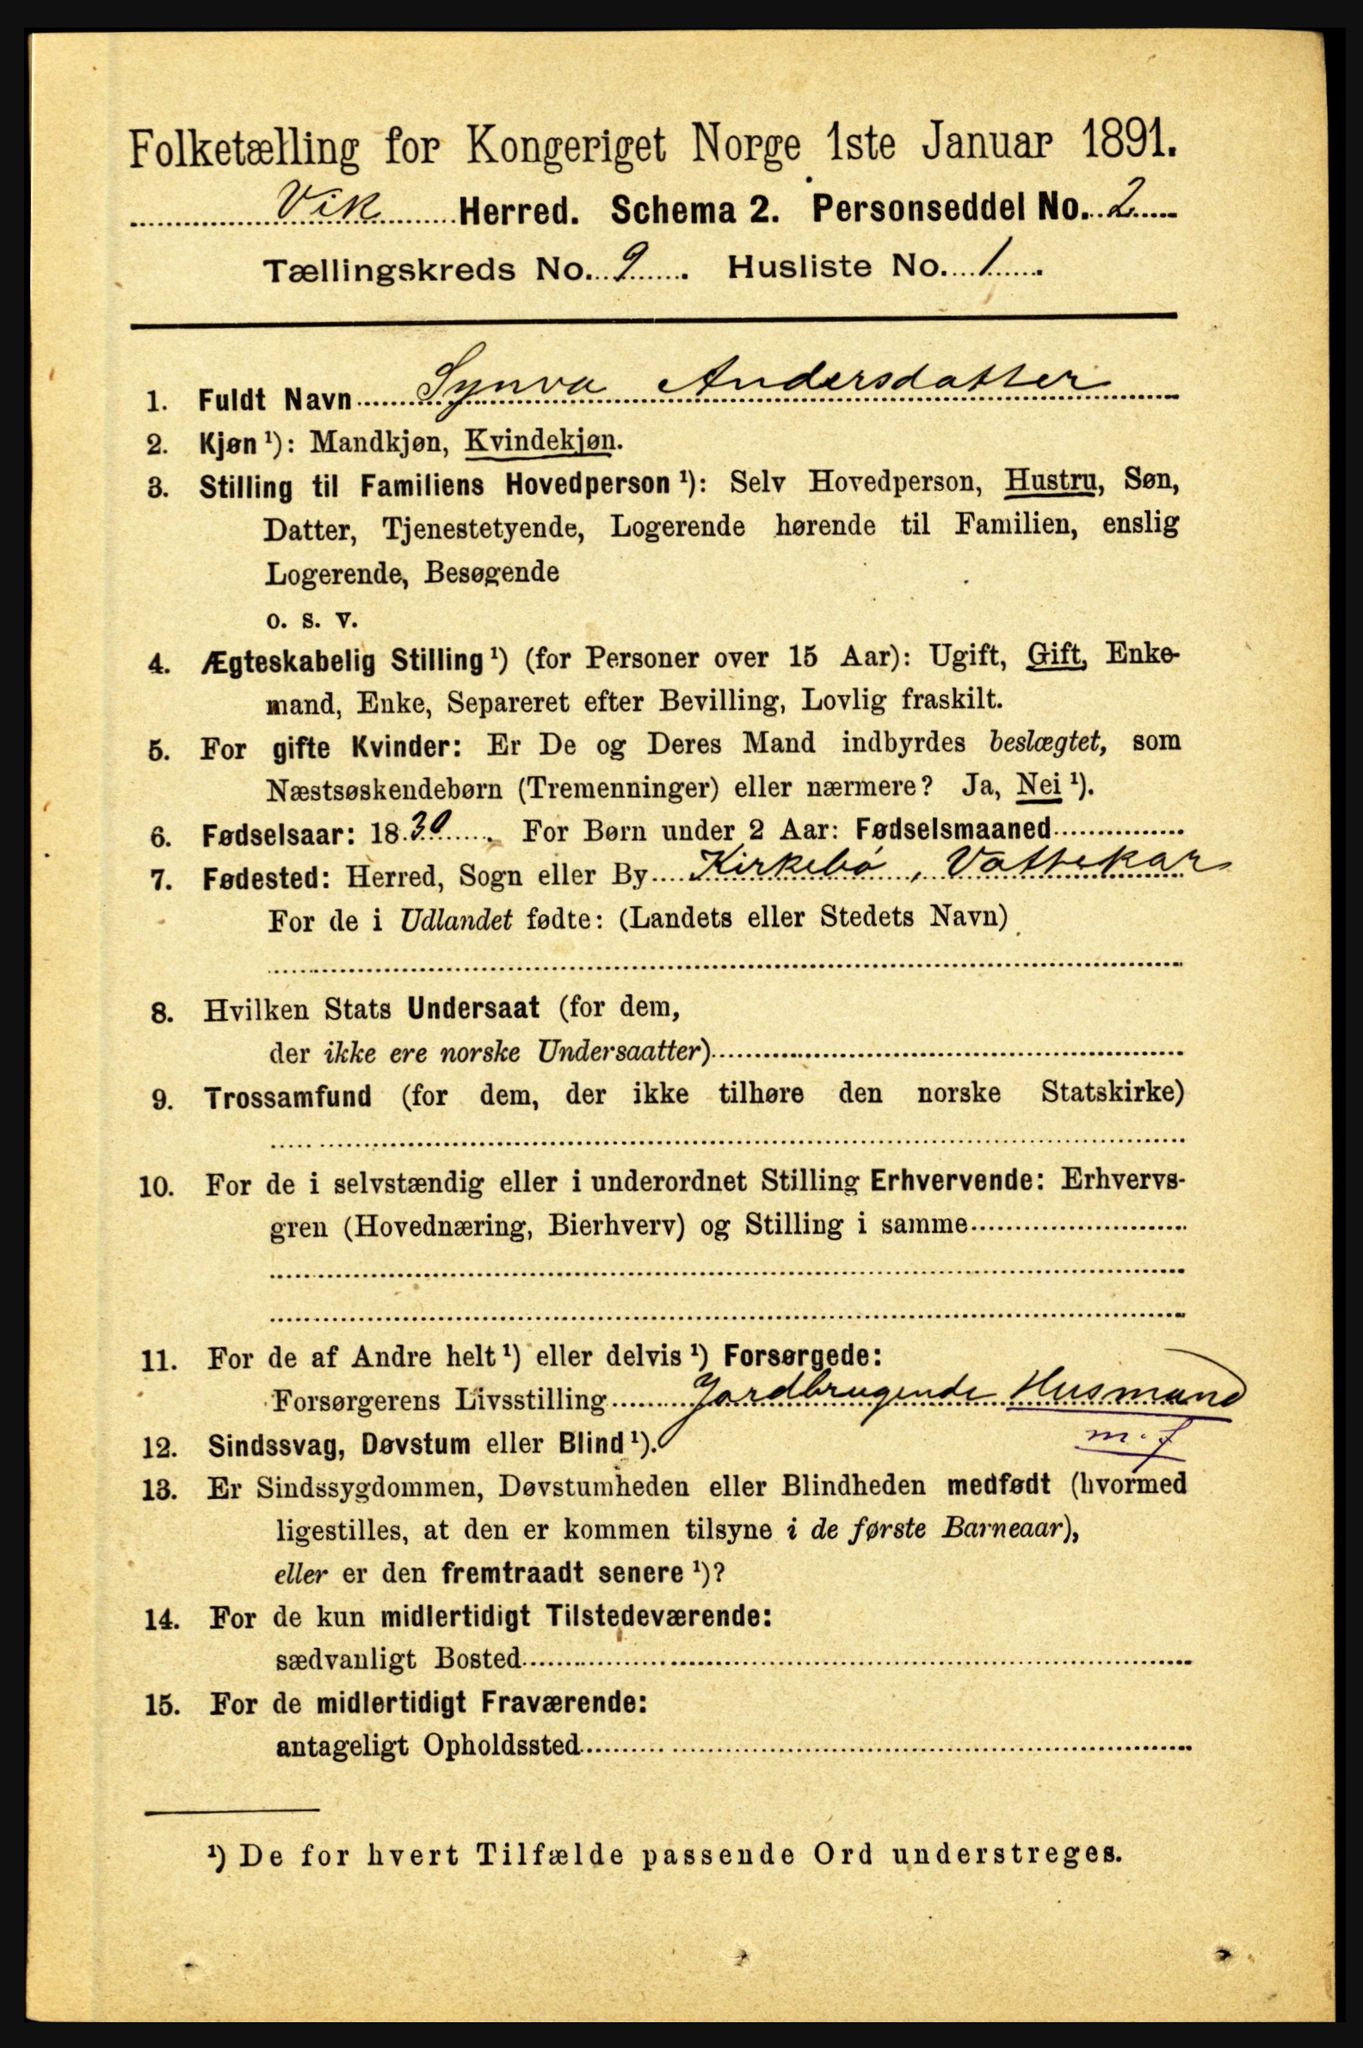 Folketælling for Kongeriget Norge 1ste Januar 1891.
Vik Herred. Schema 2. Personseddel No. 2
Tællingskreds No. 9. Husliste No. 1.
1. Fuldt Navn Synva Andersdatter
2. Kjøn¹): Mandkjøn, Kvindekjøn.
3. Stilling til Familiens Hovedperson¹): Selv Hovedperson, Hustru, Søn,
Datter, Tjenestetyende, Logerende hørende til Familien, enslig
Logerende, Besøgende
o. s. v.
4. Ægteskabelig Stilling¹) (for Personer over 15 Aar): Ugift, Gift, Enke-
mand, Enke, Separeret efter Bevilling, Lovlig fraskilt.
5. For gifte Kvinder: Er De og Deres Mand indbyrdes beslægtet, som
Næstsøskendebørn (Tremenninger) eller nærmere? Ja, Nei¹).
6. Fødselsaar: 1830. For Børn under 2 Aar: Fødselsmaaned
7. Fødested: Herred, Sogn eller By Kirkebø, Vattekar
For de i Udlandet fødte: (Landets eller Stedets Navn)
8. Hvilken Stats Undersaat (for dem,
der ikke ere norske Undersaatter)
9. Trossamfund (for dem, der ikke tilhøre den norske Statskirke)
10. For de i selvstændig eller i underordnet Stilling Erhvervende: Erhvervs-
gren (Hovednæring, Bierhverv) og Stilling i samme
11. For de af Andre helt¹) eller delvis¹) Forsørgede:
Forsørgerens Livsstilling Jordbrugende Husmand
12. Sindssvag, Døvstum eller Blind¹). m. J
13. Er Sindssygdommen, Døvstumheden eller Blindheden medfødt (hvormed
ligestilles, at den er kommen tilsyne i de første Barneaar),
eller er den fremtraadt senere¹)?
14. For de kun midlertidigt Tilstedeværende:
sædvanligt Bosted
15. For de midlertidigt Fraværende:
antageligt Opholdssted
¹) De for hvert Tilfælde passende Ord understreges.